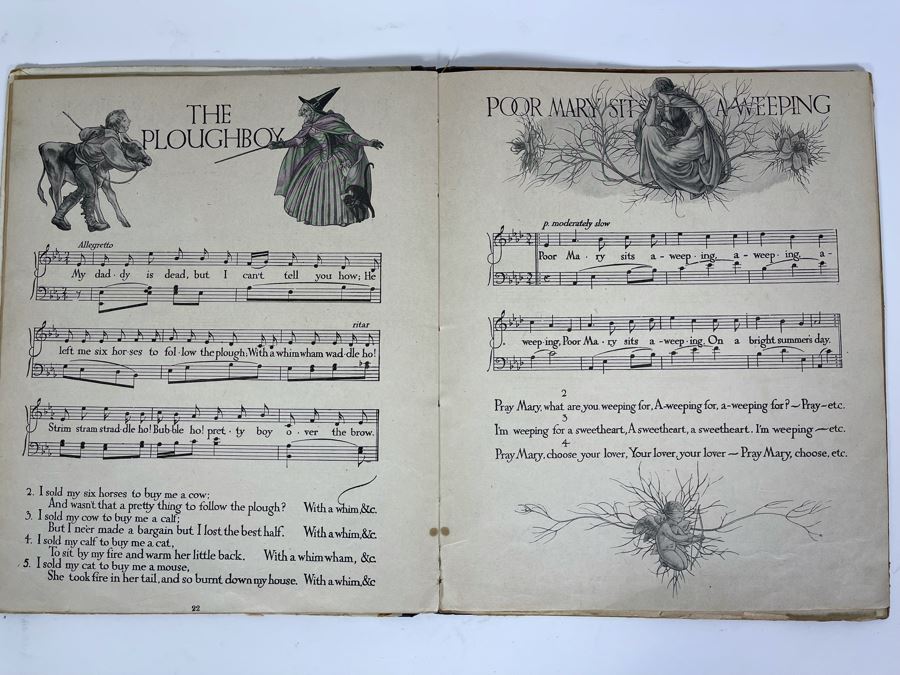 THE
PLOUGHBOY
Allegretto
My dad·dy is dead, but I can't tell you how; He
ritar
left me six hor·ses to fol·low the plough; With a whim wham wad·dle ho!
Strim stram strad·dle ho! Bub·ble ho! pret·ty boy o·ver the brow.
2. I sold my six horses to buy me a cow;
And wasn't that a pretty thing to follow the plough? With a whim, &c.
3. I sold my cow to buy me a calf;
But I ne'er made a bargain but I lost the best half. With a whim, &c.
4. I sold my calf to buy me a cat,
To sit by my fire and warm her little back. With a whim wham, &c.
5. I sold my cat to buy me a mouse,
She took fire in her tail, and so burnt down my house. With a whim, &c
22
POOR MARY SITS A-WEEPING
p. moderately slow
Poor Ma·ry sits a-weep·ing, a-weep·ing, a-
weep·ing, Poor Ma·ry sits a-weep·ing, On a bright summer's day.
2
Pray Mary, what are you weeping for, A-weeping for, a-weeping for?—Pray—etc.
3
I'm weeping for a sweetheart, A sweetheart, a sweetheart. I'm weeping—etc.
4
Pray Mary, choose your lover, Your lover, your lover—Pray Mary, choose, etc.